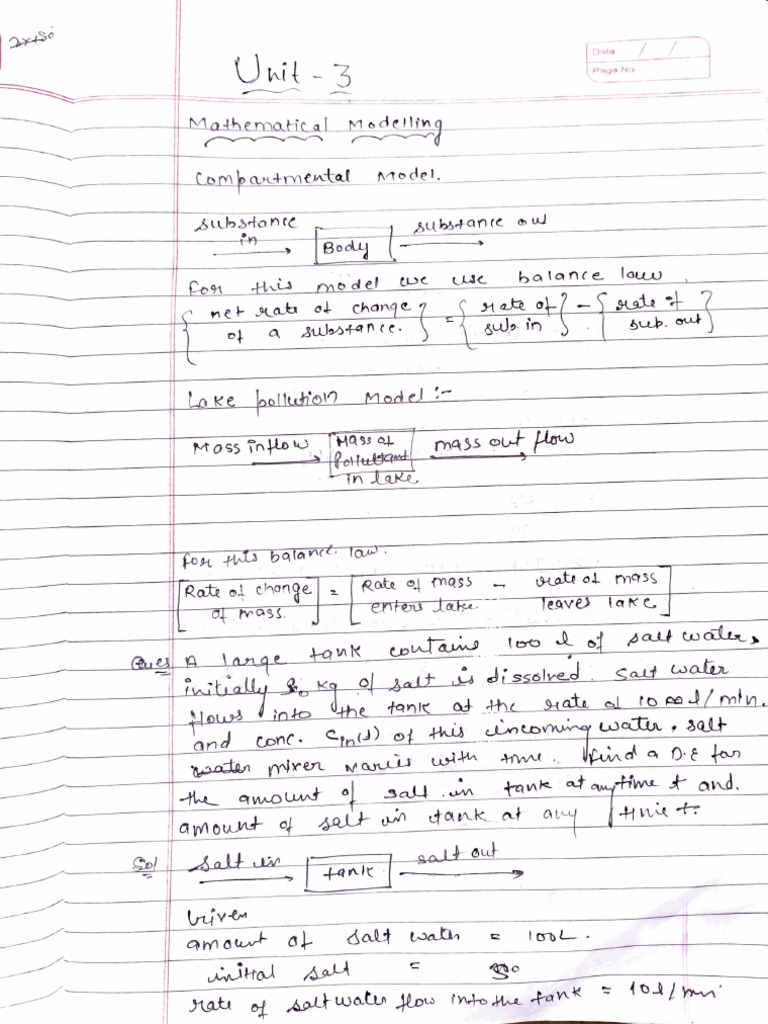 Unit - 3
Date / /
Page No
Mathematical Modelling
Compartmental Model.
substance in
Body
substance out
for this model we use balance law.
{ net rate of change of a substance. } = { rate of sub. in } - { rate of sub. out }
Lake pollution Model :-
Mass inflow
Mass of pollutant in lake
mass out flow
for this balance law.
[ Rate of change of mass ] = [ Rate of mass enters lake. - rate of mass leaves lake ]
Ques A large tank contains 100 l of salt water,
initially kg of salt is dissolved. Salt water
flows into the tank at the rate of 10 l/min.
and conc. Cin(t) of this incoming water, salt
water mixer varies with time. find a D.E for
the amount of salt in tank at any time t and.
amount of salt in tank at any time t.
Sol
salt in
tank
salt out
Given
amount of salt water = 100L.
initial salt =
rate of salt water flow into the tank = 10 l/min